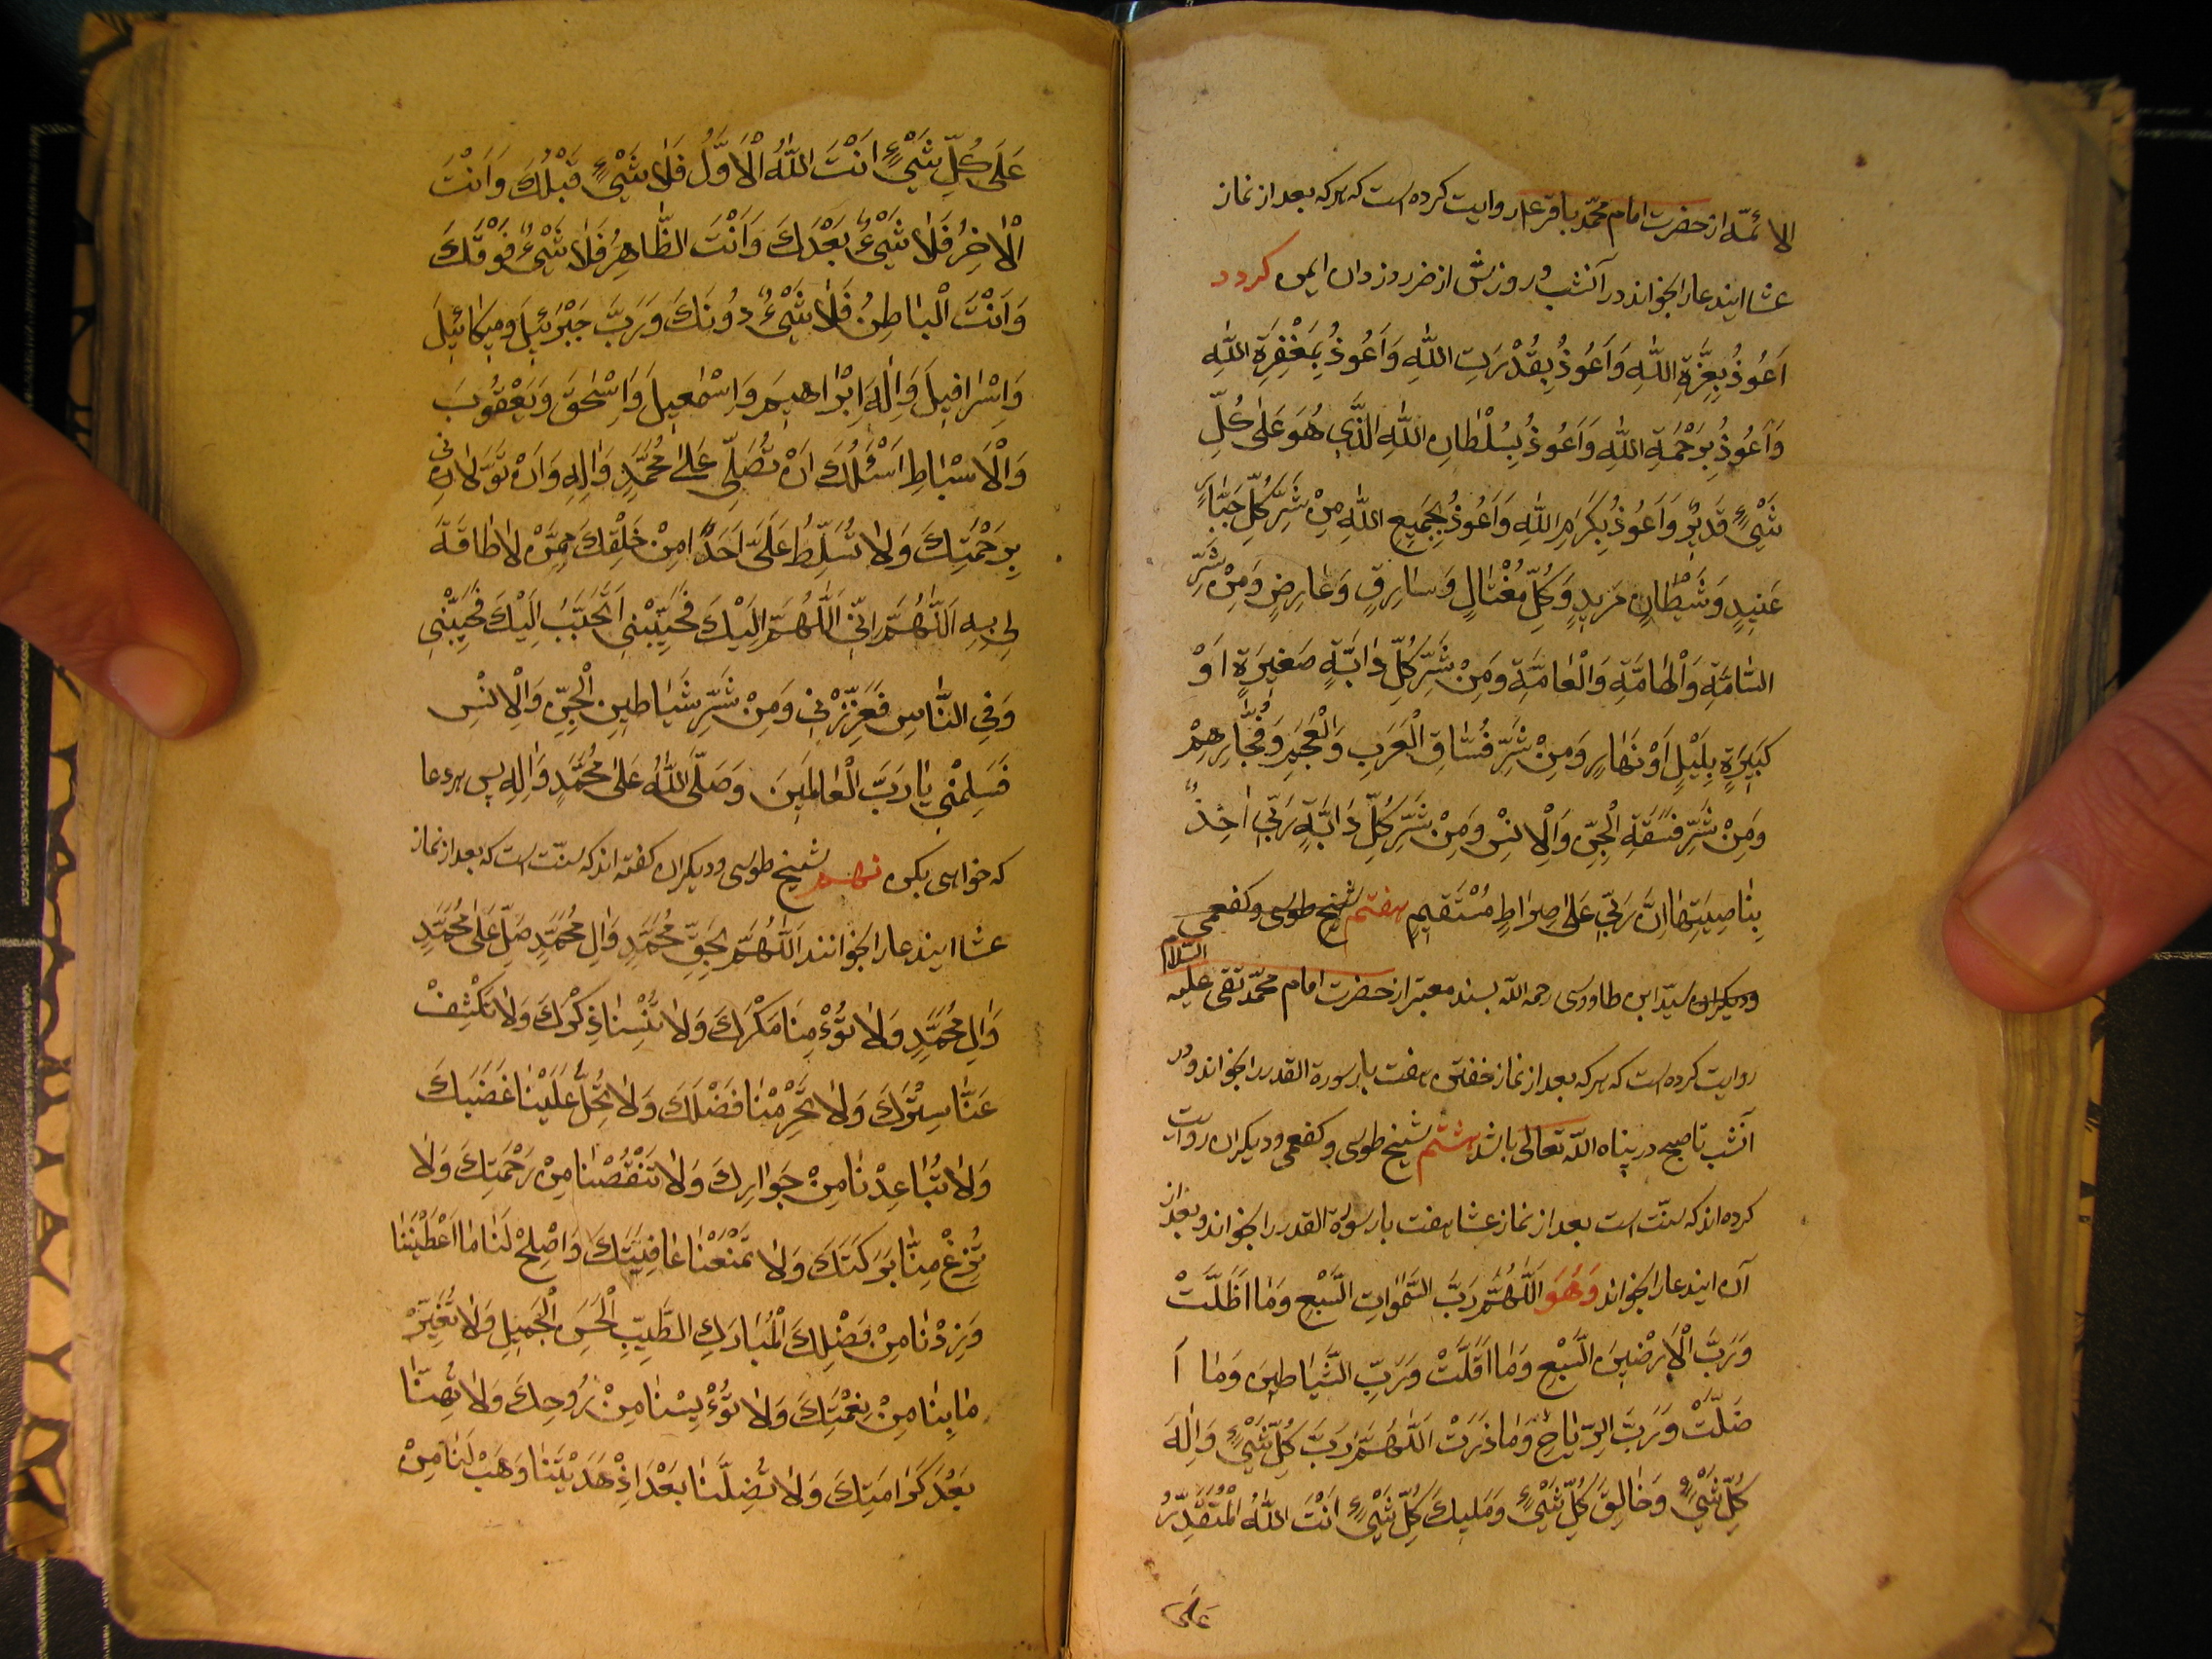 الائمّه از حضرت امام محمّد باقر ع روایت کرده است که هر که بعد از نماز
عشا ایندعا را بخواند در آنشب و روزش از ضرر دزدان ایمن کردد
اَعُوذُ بِعِزَّةِ اللّٰهِ وَاَعُوذُ بِقُدْرَتِ اللّٰهِ وَاَعُوذُ بِمَغْفِرَةِ اللّٰهِ
وَاَعُوذُ بِرَحْمَةِ اللّٰهِ وَاَعُوذُ بِسُلْطٰانِ اللّٰهِ الَّذَّي هُوَ عَلٰى كُلِّ
شَيْءٍ قَدِيرٌ وَاَعُوذُ بِكَرَمِ اللّٰهِ وَاَعُوذُ بِجَمِيعِ اللّٰهِ مِنْ شَرِّ كُلِّ جَبّٰارٍ
عَنِيدٍ وَشَيْطٰانٍ مَرِيدٍ وَكُلِّ مُغْتٰالٍ وَسٰارِقٍ وَعٰارِضٍ وَمِنْ شَرِّ
السّٰامَّةِ وَالْهٰامَّةِ وَالْعٰامَّةِ وَمِنْ شَرِّ كُلِّ دٰابَّةٍ صَغِيرَةٍ اَوْ
كَبِيرَةٍ بِلَيْلٍ اَوْ نَهٰارٍ وَمِنْ شَرِّ فُسّٰاقِ الْعَرَبِ وَالْعَجَمِ وَفُجّٰارِهِمْ
وَمِنْ شَرِّ فَسَقَةِ الْجِنِّ وَالْاِنْسِ وَمِنْ شَرِّ كُلِّ دَابَّةٍ رَبّي اٰخِذٌ
بِنٰاصِيَتِهٰا اِنَّ رَبّي عَلٰى صِرٰاطٍ مُسْتَقِيمٍ هفتم شیخ طوسی و کفعمی
ودیکران سیّد ابن طاووسی رحمه اللّه بسند معتبر از حضرت امام محمّد تقی علیه السّلام
روایت کرده است که هر که بعد از نماز خفتن هفت بار سورۀ القدر را بخواند در
آنشب تا صبح در پناه اللّه تعالی باشد هشتم شیخ طوسی و کفعمی و دیکران روایت
کرده اند که سنّت است بعد از نماز عشا هفت بار سورة القدر را بخواند و بعد از
آن ایندعا را بخواند وَهُوَ اَللّٰهُمَّ رَبَّ السَّمٰوٰاتِ السَّبْعِ وَمٰا اَظَلَّتْ
وَرَبَّ الْاَرَضِينَ السَّبْعِ وَمٰا اَقَلَّتْ وَرَبِّ الشَّيٰاطِينَ وَمٰا اَ
ضَلَّتْ وَرَبَّ الرِّيٰاحِ وَمٰا ذَرَتْ اَللّٰهُمَّ رَبَّ كُلِّ شَيْءٍ وَاِلٰهَ
كُلِّ شَيْءٍ وَخٰالِقَ كُلِّ شَيْءٍ وَمَلِيكَ كُلِّ شَيْءٍ اَنْتَ اللّٰهُ الْمُقْتَدِرُ
عَلَى
عَلَى كُلِّ شَيْءٍ اَنْتَ اللّٰهُ الْاَوَّلُ فَلٰا شَيْءٍ قَبْلَكَ وَاَنْتَ
الْاٰخِرُ فَلٰا شَيْءٌ بَعْدَكَ وَاَنْتَ الظّٰاهِرُ فَلٰا شَيْءٌ فَوْقَكَ
وَاَنْتَ الْبٰاطِنُ فَلٰا شَيْءٌ دُونَكَ وَرَبَّ جَبْرَئِيلَ وَمِيكٰائِيلَ
وَاِسْرٰافِيلَ وَاِلٰهَ اِبْرٰاهِيمَ وَاِسْمٰعِيلَ وَاِسْحٰقَ وَيَعْقُوبَ
وَالْاَسْبٰاطِ اَسْئَلُكَ اَنْ تُصَلِّىَ عَلىٰ مُحَمَّدٍ وَاٰلِهِ وَاَنْ تَوَلّانِی
بِرَحْمَتِكَ وَلٰا تُسَلِّطُ عَلَىَّ اَحَدًا مِنْ خَلْقِكَ مِمَّنْ لا طٰاقَةَ
لِي بِهِ اَللّٰهُمَّ اِنِّي اَللّٰهُمَّ اِلَيْكَ فَحَبِّبْنِي اَتَحَبَّبُ اِلَيْكَ فَحَبِّبْنِي
وَفِي النّٰاسِ فَعَزِّزْنِي وَمِنْ شَرِّ شَيٰاطِينِ الْجِنِّ وَالْاِنْسِ
فَسَلِّمْنِي يٰا رَبَّ الْعٰالَمِينَ وَصَلَّى اللّٰهُ عَلىٰ مُحَمَّدٍ وَاٰلِهِ پس هر دعا
که خواهی بکن نهم شیخ طوسی و دیکران کفته اند که سنّت است که بعد از نماز
عشا ایندعا را بخوانند اَللّٰهُمَّ بِحَقِّ مُحَمَّدٍ وَاٰلِ مُحَمَّدٍ صَلِّ عَلٰى مُحَمَّدٍ
وَاٰلِ مُحَمَّدٍ وَلٰا تُؤْمِنّا مَكْرَكَ وَلٰا تُنْسِنٰا ذِكْرَكَ وَلٰا تَكْشِفْ
عَنّٰا سِتْرَكَ وَلٰا تَحْرِمْنٰا فَضْلَكَ وَلٰا تُحِلَّ عَلَيْنٰا غَضَبَكَ
وَلٰا تُبٰاعِدْنٰا مِنْ جَوٰارِكَ وَلٰا تَنْقُصْنٰا مِنْ رَحْمَتِكَ وَلٰا
تَنْزِعْ مِنّٰا بَرَكَتَكَ وَلٰا تَمْنَعْنٰا عٰافِيَتَكَ وَاَصْلِحْ لَنٰا مٰا اَعْطَيْتَنٰا
وَزِدْنٰا مِنْ فَضْلِكَ الْمُبٰارَكِ الطَّيِّبِ الْحَسَنِ الْجَمِيلِ وَلٰا تُغَيِّرْ
مٰا بِنٰا مِنْ نِعْمَتِكَ وَلٰا تُؤْيِسْنٰا مِنْ رَوْحِكَ وَلٰا تُهِنّٰا
بَعْدَ كَرٰامَتِكَ وَلٰا تُضِلَّنٰا بَعْدَ اِذْ هَدَيْتَنٰا وَهَبْ لَنٰا مِنْ